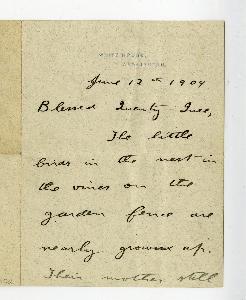 WHITE HOUSE,
WASHINGTON.
June 12th 1904
Blessed Quenty Quee,
The little
birds in the nest in
the vines on the
garden fence are
nearly grown up.
Their mother still